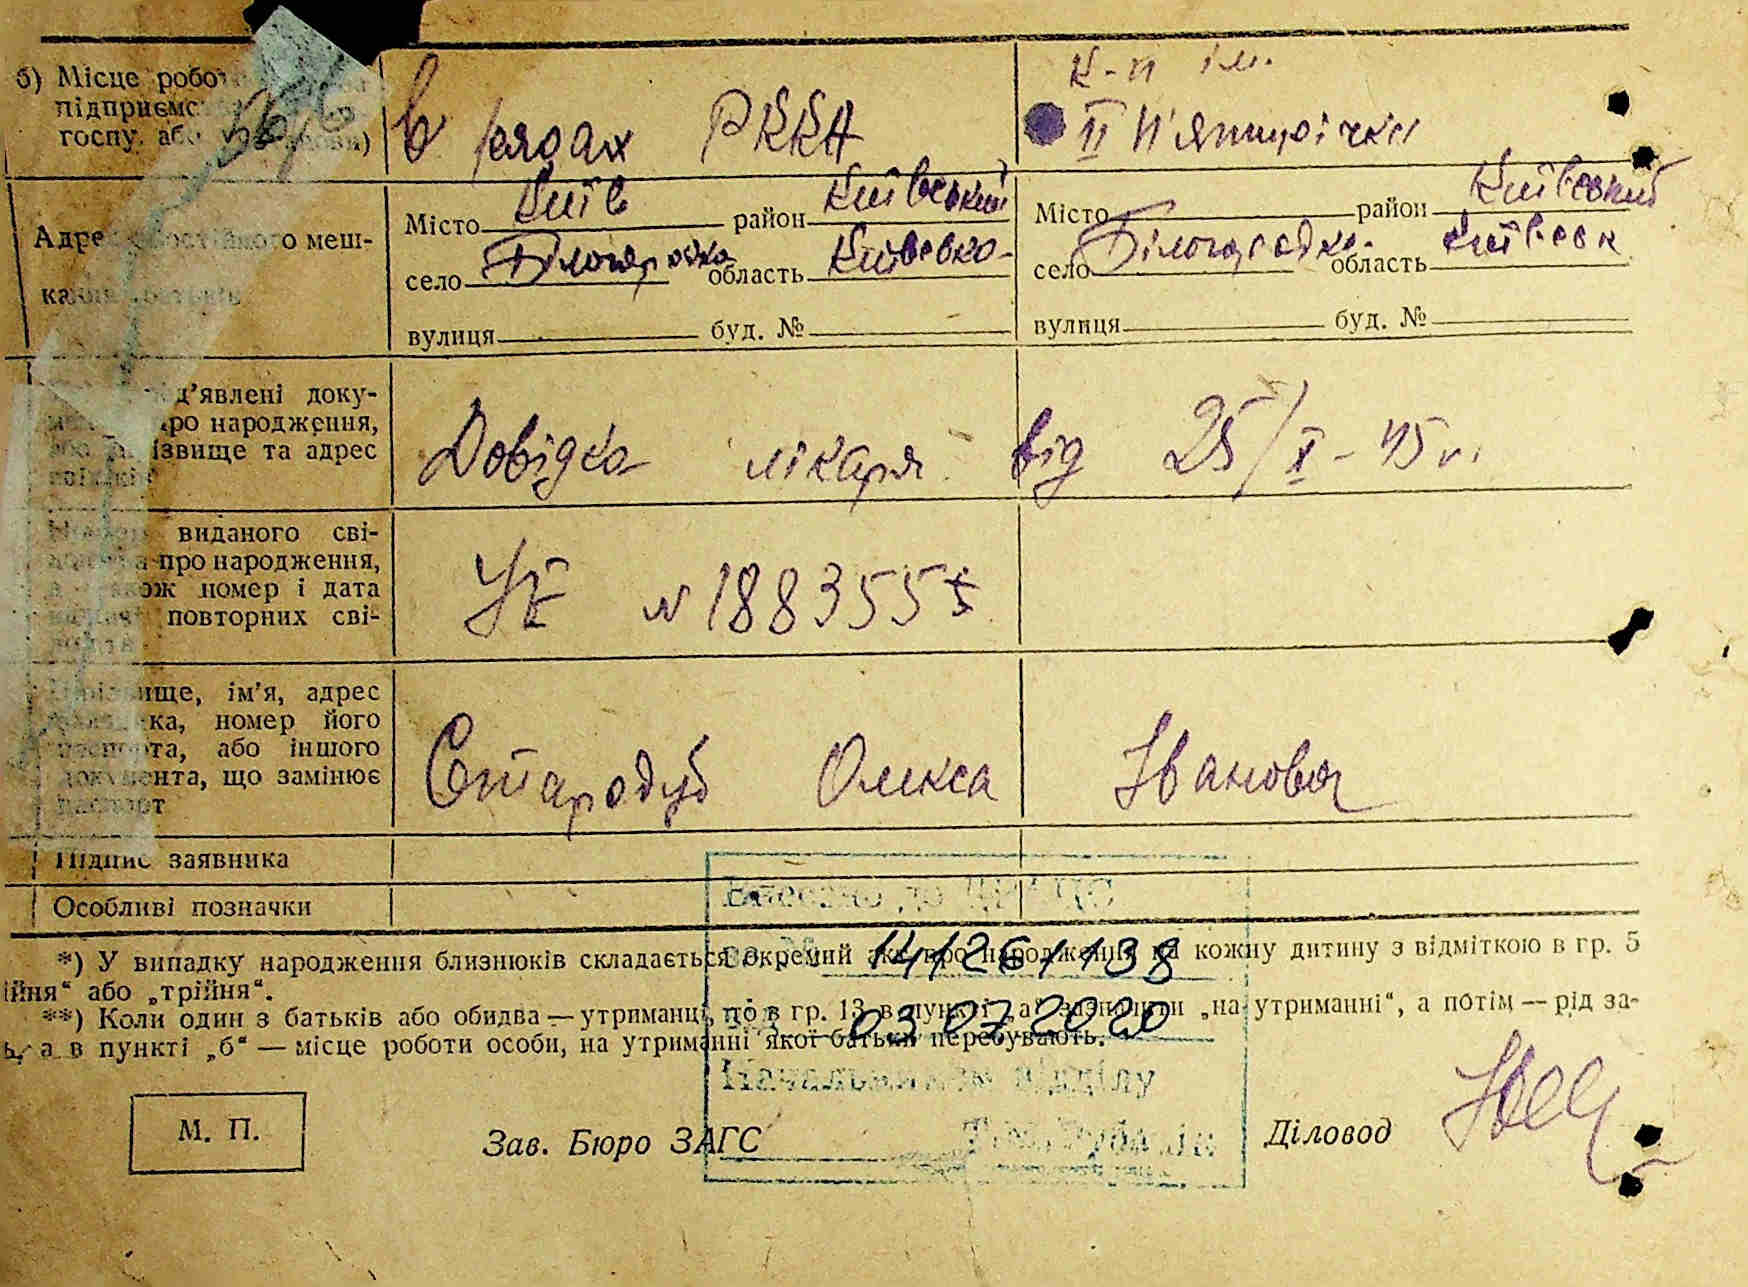 б) Місце
в рядах РККА
к-п ім.
ІІ П'ятирічки
Місто Київ район Київський
село Білогородка область Київська
вулиця буд. №
Місто район Київський
село Білогородка область Київськ
вулиця буд. №
меш-
д’явлені доку-
про народження,
ізвище та адрес
Довідка лікаря від 25/X-45 г.
виданого сві-
про народження,
номер і дата
повторних сві-
№ 1883555
ім’я, адрес
номер його
або іншого
що замінює
Стародуб Олекса Іванова
Підпис заявника
Особливі позначки
*) У випадку народження близнюків складається окремий акт про народження на кожну дитину з відміткою в гр. 5
ійня“ або „трійня“.
**) Коли один з батьків або обидва — утриманці, то в гр. 13 в пункті „а“ зазначити „на утриманні“, а потім — рід за-
а в пункті „б“ — місце роботи особи, на утриманні якої батьки перебувають.
141261138
03 07 2020
Начальник відділу
М. П.
Зав. Бюро ЗАГС
Діловод